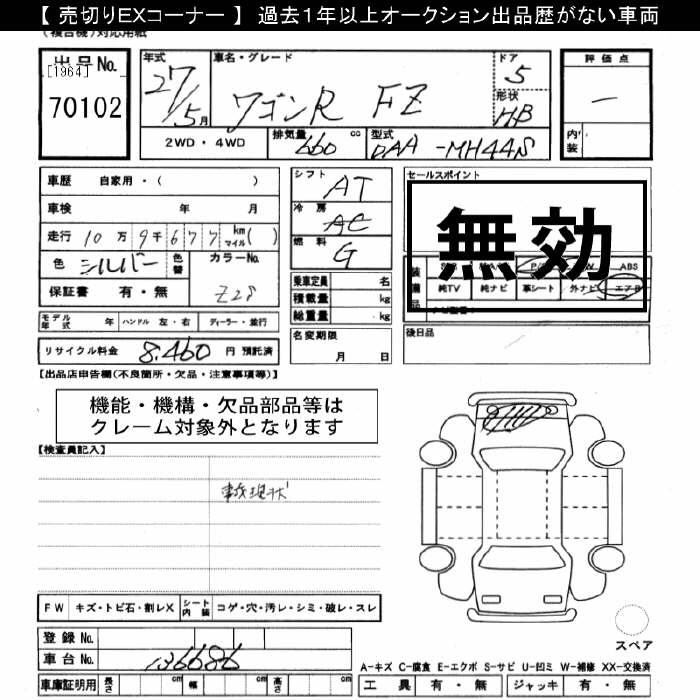 【 売切りEXコーナー 】 過去1年以上オークション出品歴がない車両
(複合機)対応用紙
出品No.
[1964]
70102
年式
27/5月
車名・グレード
ワゴンR FZ
ドア
5
形状
HB
評価点
一
内装
2WD ・ 4WD
排気量
660 cc
型式
DAA-MH44S
車歴 自家用・( )
車検 年 月
走行 10万9千677 km マイル( )
色 シルバー 色替 カラーNo. Z2S
保証書 有・無
シフト AT
冷房 AC
燃料 G
乗車定員 名
積載量 kg
総重量 kg
セールスポイント
無効
装備品
ABS
純TV 純ナビ 革シート 外ナビ エアB
モデル年式 年 ハンドル 左・右 ディーラー・並行
名変期限
月 日
後日品
リサイクル料金 8,460 円 預託済
【出品店申告欄(不良箇所・欠品・注意事項等)】
機能・機構・欠品部品等は
クレーム対象外となります
【検査員記入】
事故現状
FW キズ・トビ石・割レX シート内装 コゲ・穴・汚レ・シミ・破レ・スレ
登録No.
車台No. 136686
車庫証明用 長さ cm 幅 cm 高さ cm
スペア
A-キズ C-腐食 E-エクボ S-サビ U-凹ミ W-補修 XX-交換済
工具 有・無 ジャッキ 有・無